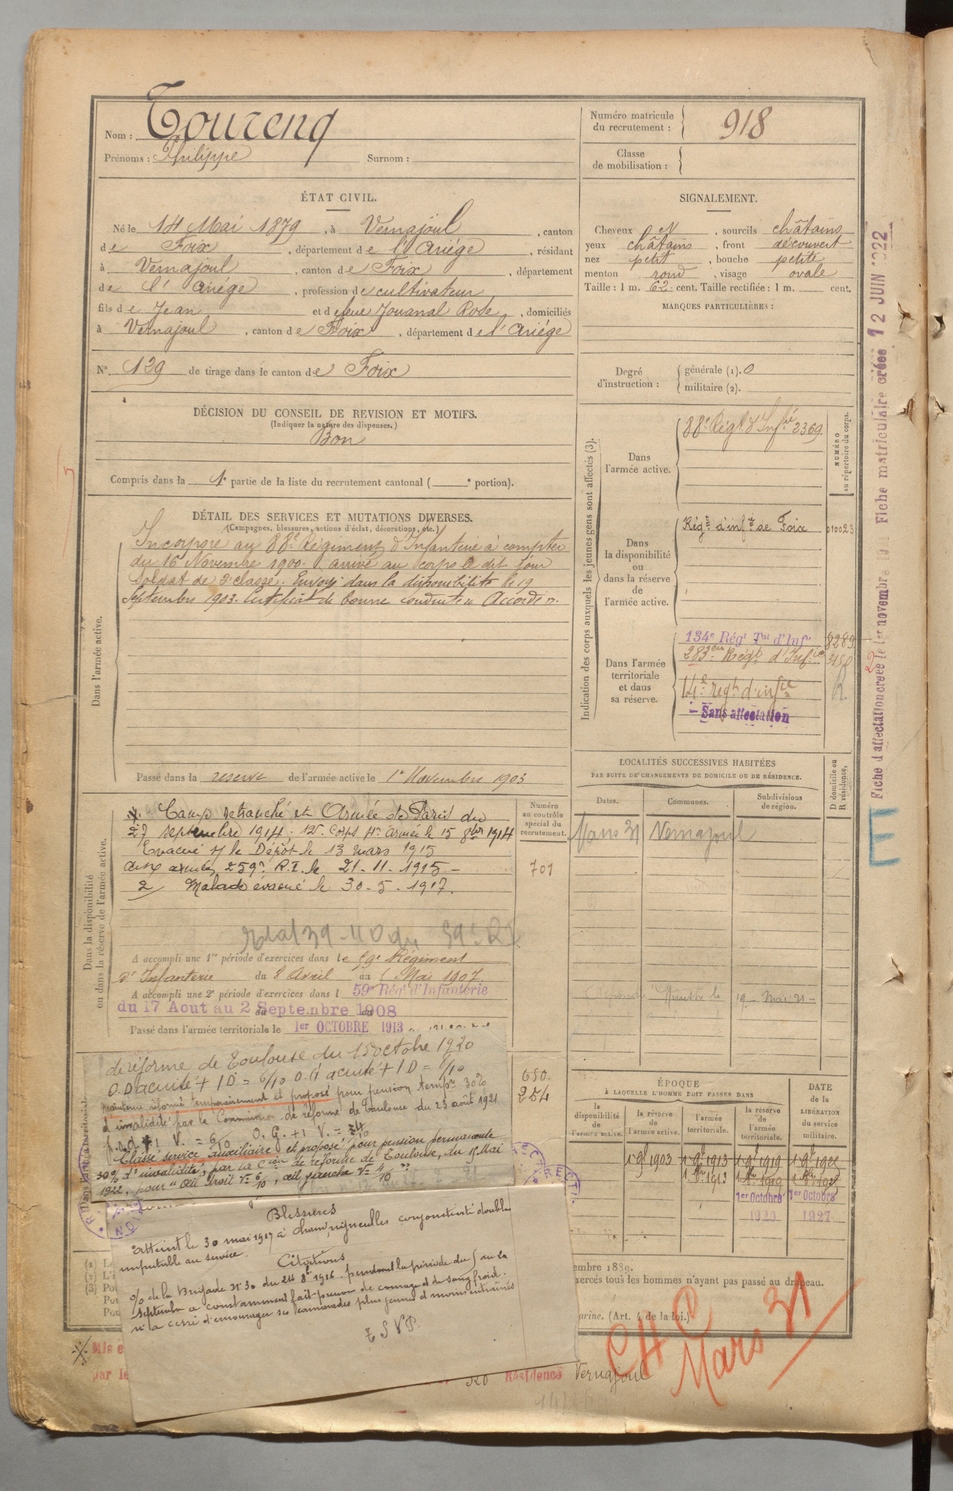 Nom : Tourenq
Prénoms : Philippe Surnom :
Numéro matricule du recrutement : 918
Classe de mobilisation :
ÉTAT CIVIL.
Né le 14 Mai 1879, à Vernajoul, canton
de Foix, département de l'Ariége, résidant
à Vernajoul, canton de Foix, département
de l'Ariége, profession de cultivateur
fils de Jean et de feue Jouanal Rode, domiciliés
à Vernajoul, canton de Foix, département de l'Ariége
N° 129 de tirage dans le canton de Foix
SIGNALEMENT.
Cheveux N, sourcils châtains
yeux châtains, front découvert
nez petit, bouche petite
menton rond, visage ovale
Taille : 1 m. 62 cent. Taille rectifiée : 1 m. cent.
MARQUES PARTICULIÈRES :
Degré d'instruction : générale (1). 0
militaire (2).
DÉCISION DU CONSEIL DE REVISION ET MOTIFS.
(Indiquer la nature des dispenses.)
Bon
Compris dans la 1e partie de la liste du recrutement cantonal ( e portion).
DÉTAIL DES SERVICES ET MUTATIONS DIVERSES.
(Campagnes, blessures, actions d'éclat, décorations, etc.)
Dans l'armée active.
Incorporé au 88e Régiment d'Infanterie à compter
du 16 Novembre 1900. arrivé au corps le dit jour
Soldat de 2e classe. Envoyé dans la disponibilité le 19
Septembre 1903. Certificat de bonne conduite "Accordé".
Passé dans la réserve de l'armée active le 1er Novembre 1903
Indication des corps auxquels les jeunes gens sont affectés (3).
NUMÉRO au répertoire du corps.
Dans l'armée active.
88e Régt d'Infie 2369
Dans la disponibilité ou dans la réserve de l'armée active.
Régt d'infie de Foix 010023
Dans l'armée territoriale et dans sa réserve.
134e Régt Tal d'Infie 8289
283eme Régt d'Infie
14e regt d'infie
Sans affectation
Dans la disponibilité ou dans la réserve de l'armée active.
Camp retranché et Armée de Paris du
27 septembre 1914. 12e Corps 4e armée le 15 8bre 1914
Evacué s/ le Dépôt le 13 mars 1915
aux armées 259e R.I. le 21-11-1915 -
2/ Malade évacué le 30-5-1917.
Numéro au contrôle spécial du recrutement.
701
A accompli une 1re période d'exercices dans le 59e Régiment
d'Infanterie du 8 Avril au Mai 1907
A accompli une 2e période d'exercices dans l 59e Régt d'Infanterie
du 17 Aout au 2 Septembre 1908
Passé dans l'armée territoriale le 1er OCTOBRE 1913
650.
254
de réforme de Toulouse du 15 octobre 1920
O.D acuité + 1D = 6/10 O.G acuité + 1D = /10
Maintenu réformé temporairement et proposé pour pension tempre 30%
d'invalidité par la Commission de réforme de Toulouse du 23 août 1921
Classé service auxiliaire et proposé pour pension permanente
30% d'invalidité, par la Cion de réforme de Toulouse, du 15 Mai
1922, pour "œil droit V = 6/10, œil gauche V = 4/10"
Blessures
Atteint le 30 mai 1917 à Champigneulles conjonctivite double
imputable au service.
Citations
O/ de la Brigade N° 30 du 24 8bre 1916. pendant la période de
Septembre a constamment fait preuve de courage et de sang froid.
n'a cessé d'encourager ses camarades plus jeunes et moins entrainés
T S V P
LOCALITÉS SUCCESSIVES HABITÉES
PAR SUITE DE CHANGEMENTS DE DOMICILE OU DE RÉSIDENCE.
Dates. Communes. Subdivisions de région. D. domicile ou R. résidence.
Mars 31 Vernajoul
ÉPOQUE
À LAQUELLE L'HOMME DOIT PASSER DANS
DATE de la LIBÉRATION du service militaire.
la disponibilité de l'armée active. la réserve de l'armée active. l'armée territoriale. la réserve de l'armée territoriale.
1er 9bre 1903 1er 9bre 1913 1er 9bre 1919
1er Octobre 1er Octobre
1927
embre 1889.
exercés tous les hommes n'ayant pas passé au drapeau.
arine. (Art. 4 de la loi.)
CH P
Mars 31
Résidence Vernajoul
Fiche d'affectation créée le 1er novembre
Fiche matriculaire créée 12 JUIN 1922
E